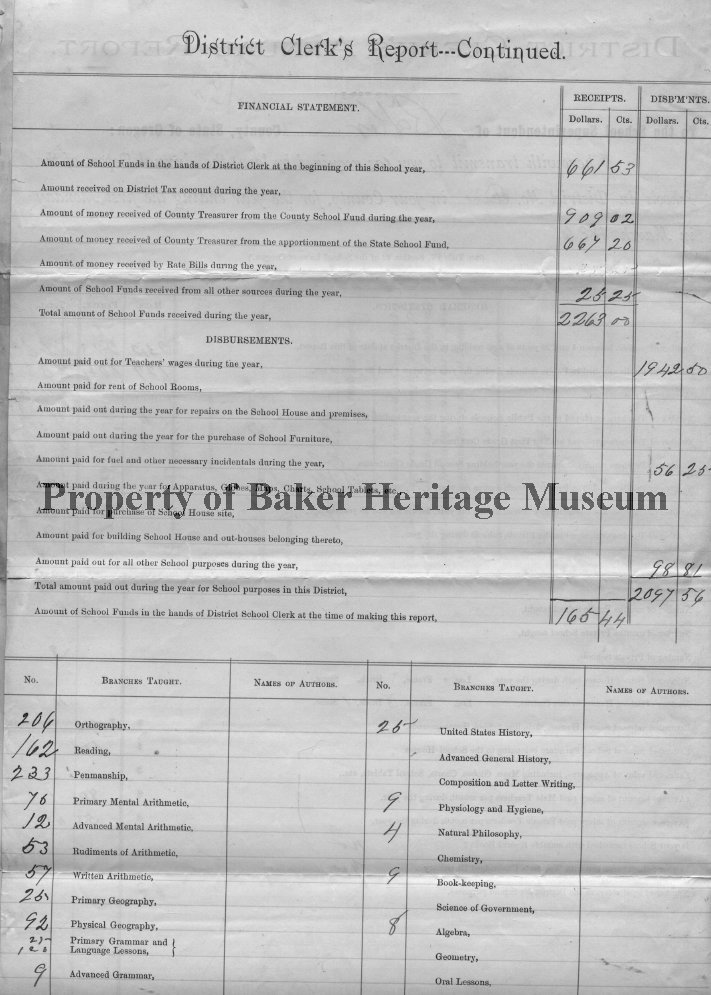 District Clerk's Report---Continued.
FINANCIAL STATEMENT. RECEIPTS. DISB'M'NTS.
Dollars. Cts. Dollars. Cts.
Amount of School Funds in the hands of District Clerk at the beginning of this School year, 661 53
Amount received on District Tax account during the year,
Amount of money received of County Treasurer from the County School Fund during the year, 909 02
Amount of money received of County Treasurer from the apportionment of the State School Fund, 667 20
Amount of money received by Rate Bills during the year,
Amount of School Funds received from all other sources during the year, 25 25
Total amount of School Funds received during the year, 2263 00
DISBURSEMENTS.
Amount paid out for Teachers' wages during the year, 1942 50
Amount paid for rent of School Rooms,
Amount paid out during the year for repairs on the School House and premises,
Amount paid out during the year for the purchase of School Furniture,
Amount paid for fuel and other necessary incidentals during the year, 56 25
Amount paid during the year for Apparatus, Globes, Maps, Charts, School Tablets, etc.,
Property of Baker Heritage Museum
Amount paid for purchase of School House site,
Amount paid for building School House and out-houses belonging thereto,
Amount paid out for all other School purposes during the year, 98 81
Total amount paid out during the year for School purposes in this District, 2097 56
Amount of School Funds in the hands of District School Clerk at the time of making this report, 165 44
No. BRANCHES TAUGHT. NAMES OF AUTHORS. No. BRANCHES TAUGHT. NAMES OF AUTHORS.
206 Orthography, 25 United States History,
162 Reading, Advanced General History,
233 Penmanship, Composition and Letter Writing,
76 Primary Mental Arithmetic, 9 Physiology and Hygiene,
12 Advanced Mental Arithmetic, 4 Natural Philosophy,
53 Rudiments of Arithmetic, Chemistry,
57 Written Arithmetic, 9 Book-keeping,
25 Primary Geography, Science of Government,
92 Physical Geography, 8 Algebra,
Primary Grammar and
Language Lessons, } Geometry,
9 Advanced Grammar, Oral Lessons,